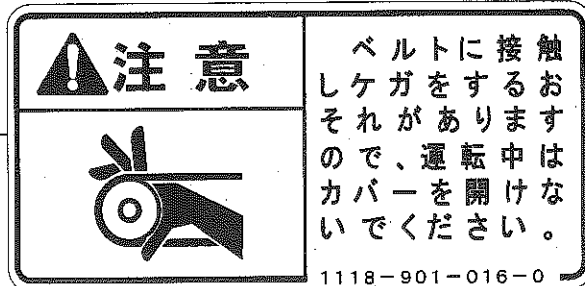 注意
ベルトに接触
しケガをするお
それがあります
ので、運転中は
カバーを開けな
いでください。
1118-901-016-0